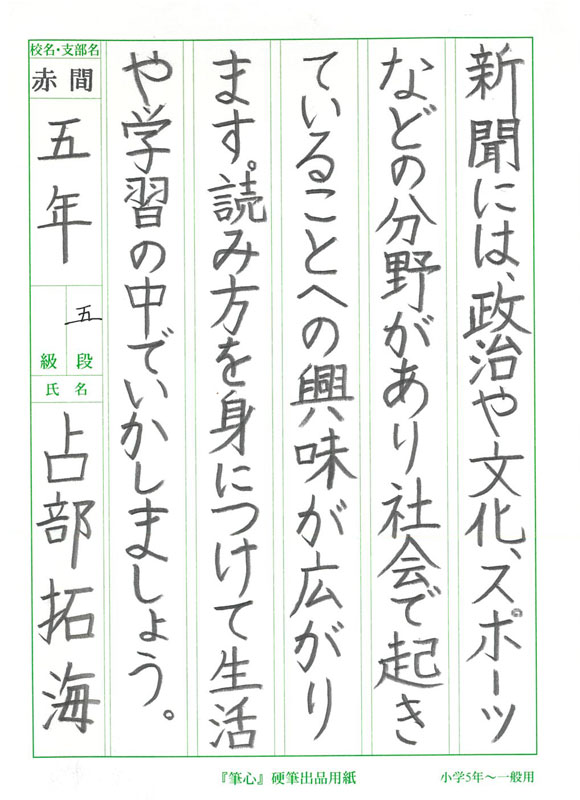 新聞には、政治や文化、スポーツ
などの分野があり社会で起き
ていることへの興味が広がり
ます。読み方を身につけて生活
や学習の中でいかしましょう。
校名・支部名
赤間
五年
五
級段
氏名
占部拓海
『筆心』硬筆出品用紙
小学5年〜一般用